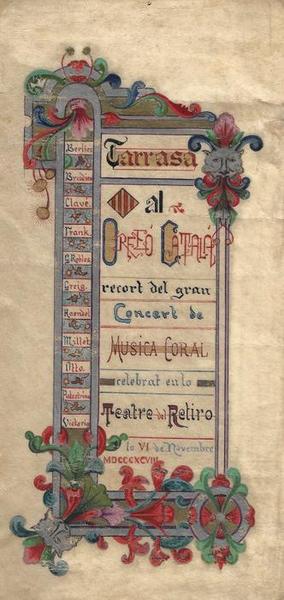 Tarrasa
al
Orfeó Catalá
recort del gran
Concert de
Musica Coral
celebrat en lo
Teatre del Retiro
lo VI de Novembre
MDCCCXCVIII
Berlioz
Brudieu
Clavé
Frank
G. Robles
Greig
Haendel
Millet
Otto
Palestrina
Victoria